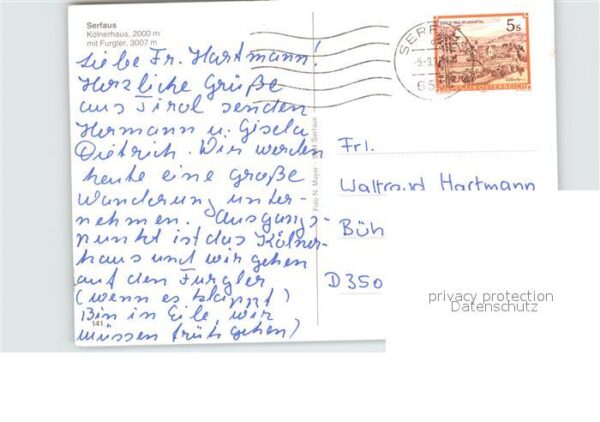 Serfaus
Kölnerhaus, 2000 m
mit Furgler, 3007 m
Liebe Fr. Hartmann!
Herzliche Grüße
aus Tirol senden
Hermann u. Gisela
Dietrich. Wir werden
heute eine große
Wanderung unter-
nehmen. Ausgangs-
punkt ist das Kölner-
haus und wir gehen
auf den Furgler
(wenn es klappt)
Bin in Eile, wir
müssen früh gehen)
141
Foto N. Mayer Serfaus
5 s
REPUBLIK ÖSTERREICH
Frl.
Waltraud Hartmann
Büh
D 350
privacy protection
Datenschutz